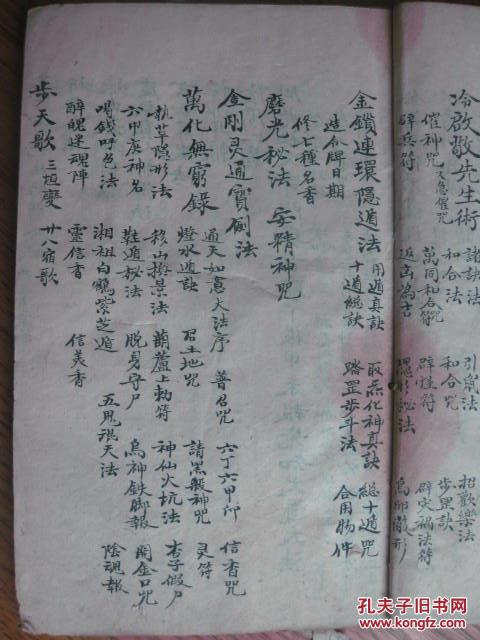 冷啟敬先生術 諸訣法 引氣法 招歡樂法
催神咒 又急催咒 和合法 和合咒 步罡訣
辟兵符 萬同和合咒 辟怪符 辟穴禍法符
返凶為吉 隱形秘法
金鎖連環隱遁法 用遁真訣 取炁化神真訣 總十遁咒
造分牌日期 十遁總訣 踏罡步斗法 合用物件
修七種名香
磨光秘法 安精神咒
金剛灵通寶劍法
萬化無窮錄 通天如意大法序 普召咒 六丁六甲印 信香咒
燈水遁訣 召土地咒 請黑殺神咒 灵符
執草隱形法 移山撥景法 葫蘆上勅符 神仙火坑法 杏子假尸
六甲庚神名 鞋遁秘法 脫身守尸 烏神鉄脚報 開金口咒
喝錢呼色法 湘祖白鶴紫芝遁 五鬼混天法 陰魂報
醉魄迷魂陣 靈信香 信美香
步天歌 三垣變 廿八宿歌
孔夫子旧书网